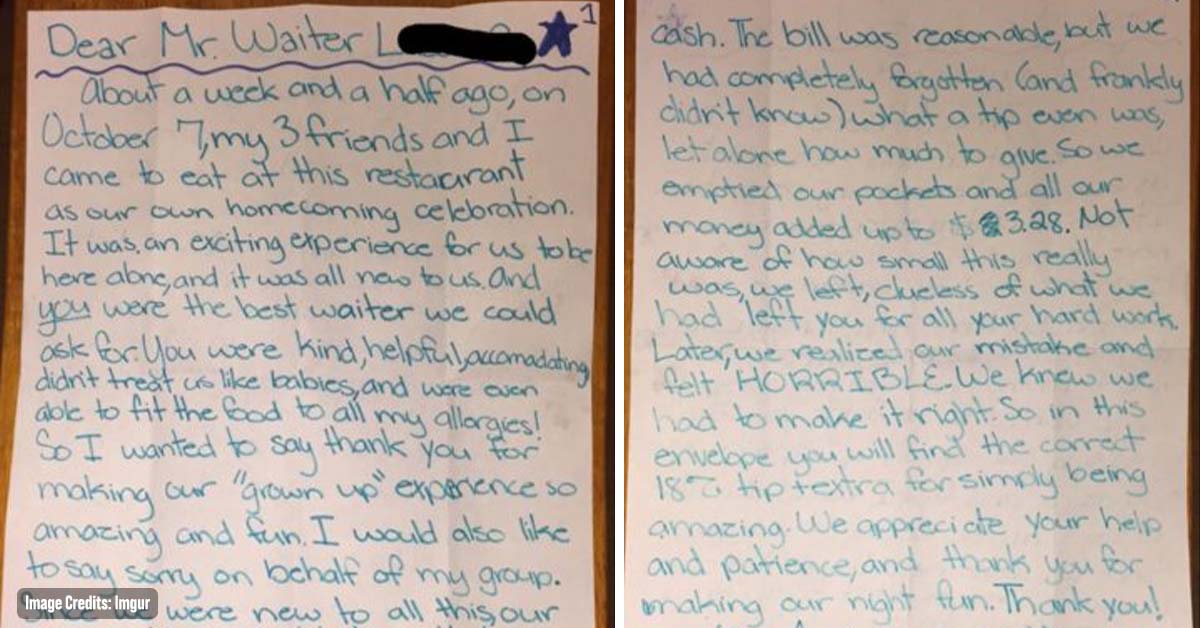 Dear Mr. Waiter L
1
About a week and a half ago, on
October 7, my 3 friends and I
came to eat at this restaurant
as our own homecoming celebration.
It was an exciting experience for us to be
here alone, and it was all new to us. And
you were the best waiter we could
ask for. You were kind, helpful, accomadating
didn't treat us like babies, and were even
able to fit the food to all my allergies!
So I wanted to say thank you for
making our "grown up" experience so
amazing and fun. I would also like
to say sorry on behalf of my group.
Since we were new to all this, our
Image Credits: Imgur
cash. The bill was reasonable, but we
had completely forgotten (and frankly
didn't know) what a tip even was,
let alone how much to give. So we
emptied our pockets and all our
money added up to $3.28. Not
aware of how small this really
was, we left, clueless of what we
had left you for all your hard work.
Later, we realized our mistake and
felt HORRIBLE. We knew we
had to make it right. So in this
envelope you will find the correct
18% tip + extra for simply being
amazing. We appreciate your help
and patience, and thank you for
making our night fun. Thank you!